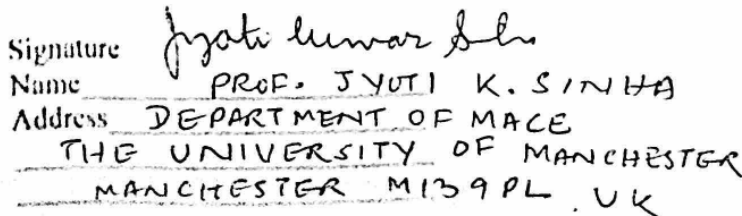 Signature Jyoti Kumar Sinha
Name PROF. JYOTI K. SINHA
Address DEPARTMENT OF MACE
THE UNIVERSITY OF MANCHESTER
MANCHESTER M139PL. UK